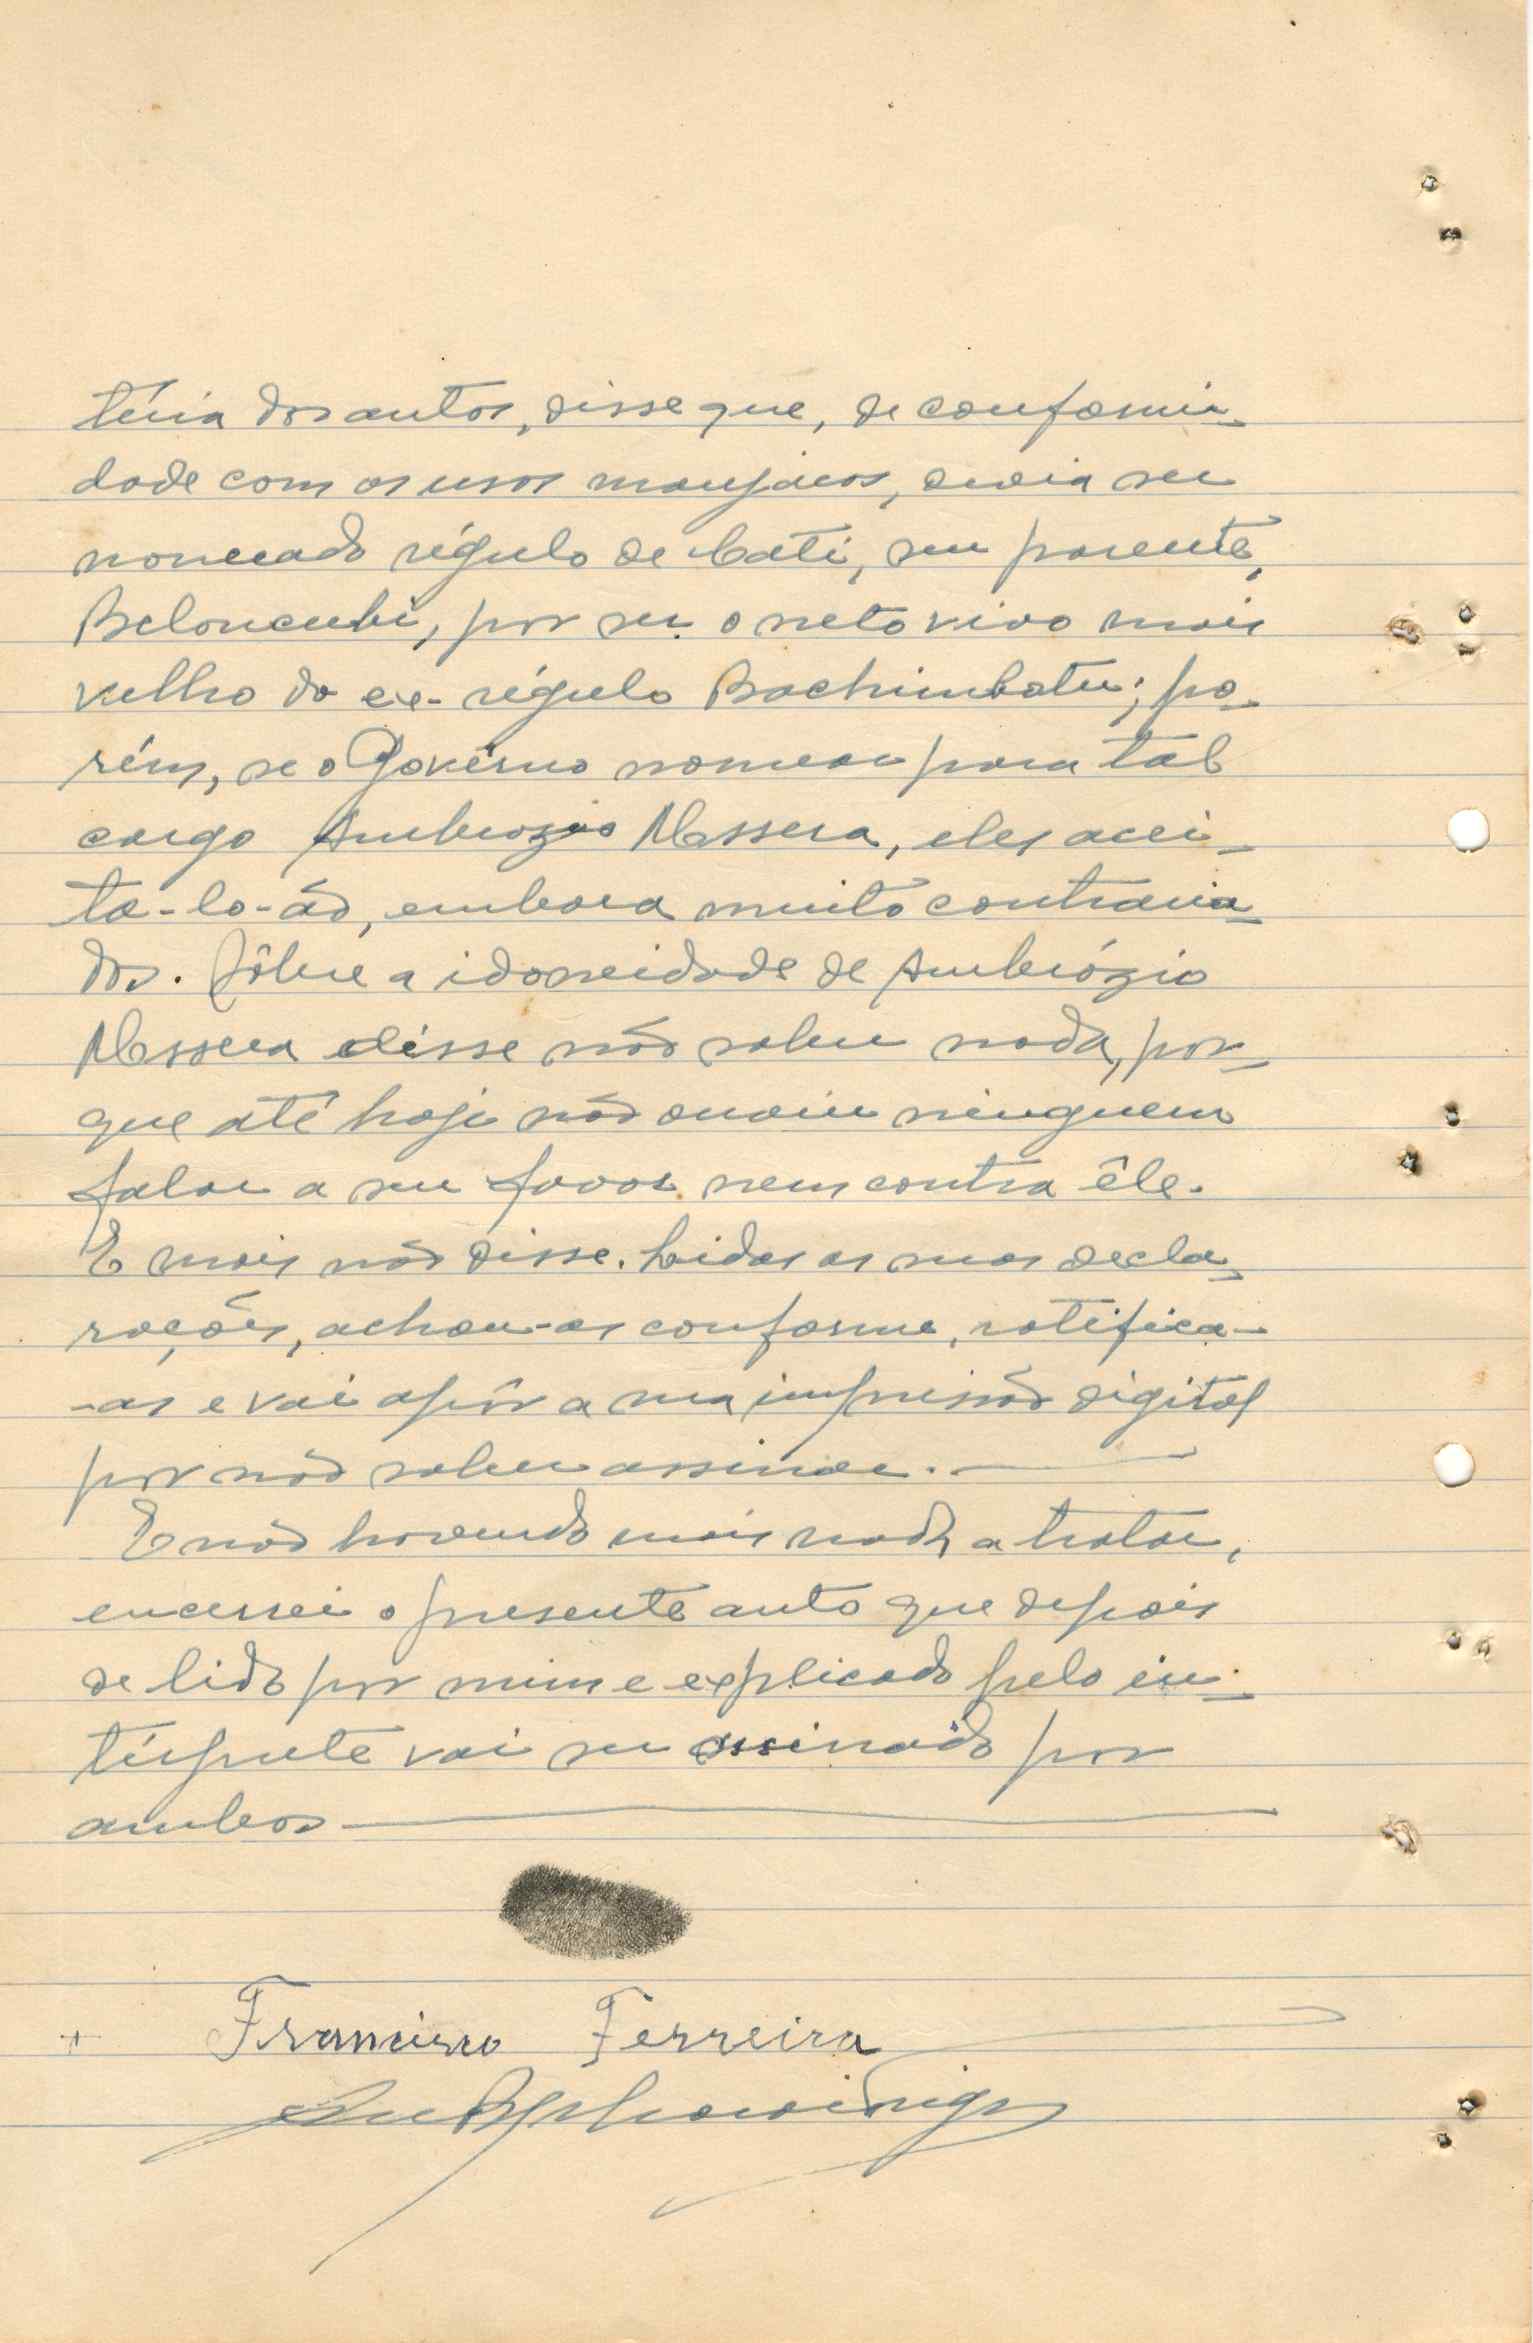 téria dos autos, disse que, de conformi-
dade com os usos manjacos, devia ser
nomeado régulo de Cati, seu parente,
Beloncubi, por ser o neto vivo mais
velho do ex-régulo Bachimbatu; po-
rém, se o Govêrno nomear para tal
cargo Ambrozio Massera, eles acei-
ta-lo-ão, embora muito contraria-
dos. Sôbre a idoneidade de Ambrózio
Massera disse não saber nada, por-
que até hoje não ouviu ninguem
falar a seu favor nem contra êle.
E mais não disse. Lidas as suas decla-
rações, achou-as conforme, ratifica-
-as e vai apôr a sua impressão digital
por não saber assinar.
E não havendo mais nada a tratar,
encerrei o presente auto que depois
de lido por mim e explicado pelo in-
térprete vai ser assinado por
ambos
+ Francisco Ferreira